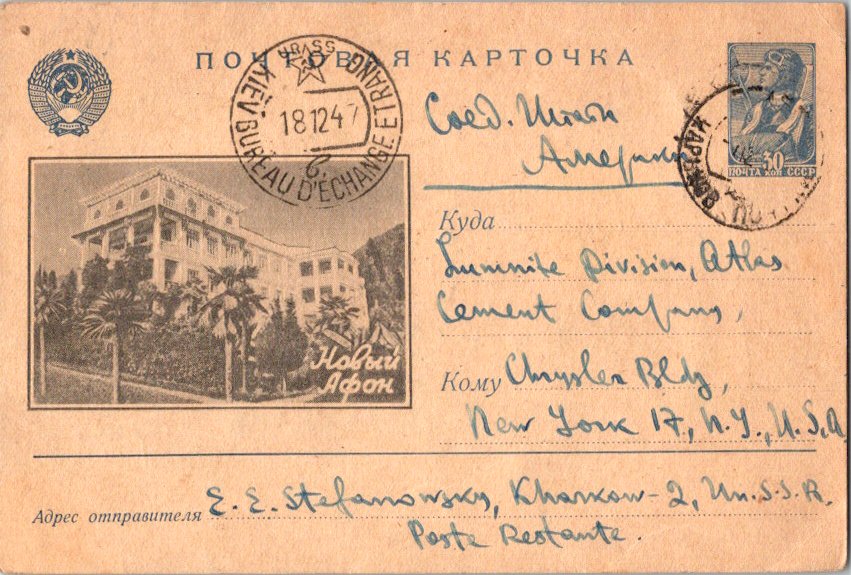 ПОЧТОВАЯ КАРТОЧКА
URSS SSSR
KIEV BUREAU D'ECHANGE ETRANG
181247
Соед. Штаты
Америки
30
ПОЧТА КОП СССР
ХАРЬКОВ
Новый
Афон
Куда
Lumnite Division, Atlas
Cement Company,
Кому Chrysler Bldg,
New York 17, N.Y., U.S.A
Адрес отправителя E. E. Stefanowsky, Kharkow-2, Un.S.S.R.
Poste Restante.